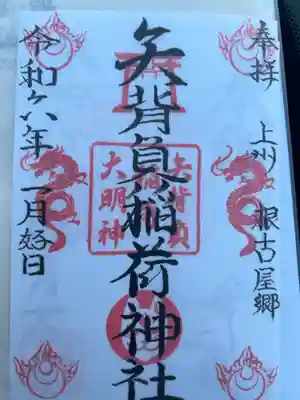 奉拝
上州 根古屋郷
矢背負稲荷神社
大明神
令和六年 一月好日